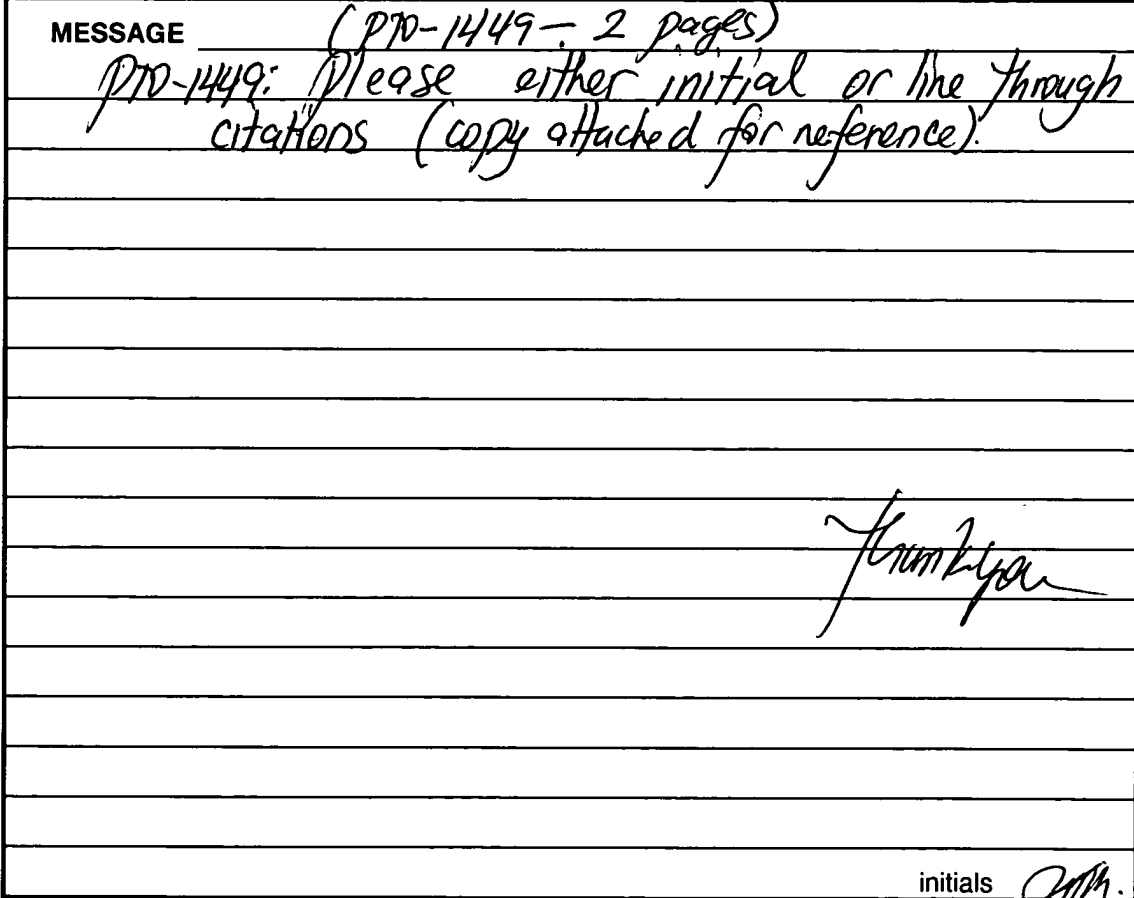 MESSAGE (PTO-1449 - 2 pages)
PTO-1449: Please either initial or line through
citations (copy attached for reference).
Thank you
initials